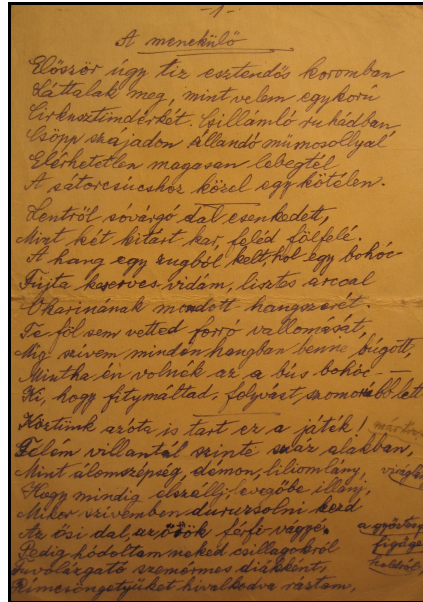 -1-
A menekülő
Először úgy tiz esztendős koromban
Láttalak meg, mint velem egykorú
Cirkusztündérkét. Csillámló ruhádban
Csöpp szájadon állandó műmosollyal
Elérhetetlen magasan lebegtél
A sátorcsúcshoz közel egy kötélen.
Lentről sóvárgó dal esenkedett,
Mint két kitárt kar, feléd fölfelé.
A hang egy zugból kelt, hol egy bohóc
Fujta keserves-vidám, lisztes arccal
Okarinának mondott hangszerét.
Te föl sem vetted forró vallomását,
Mig szivem minden hangban benne búgott,
Mintha én volnék az a bús bohóc —
Ki, hogy fitymáltad, folyvást szomorúbb lett
Köztünk azóta is tart ez a játék!
Felém villantál szinte száz alakban,
Mint álomszépség, démon, liliomlány,
Hogy mindig elszállj levegőbe illanj,
Mikor szivemben duruzsolni kezd
Az ősi dal, az örök férfi-vágyé.
Pedig hódoltam neked csillagokról
szemérmes diákként,
Rimcsöngetyüket hivalkodva ráztam,